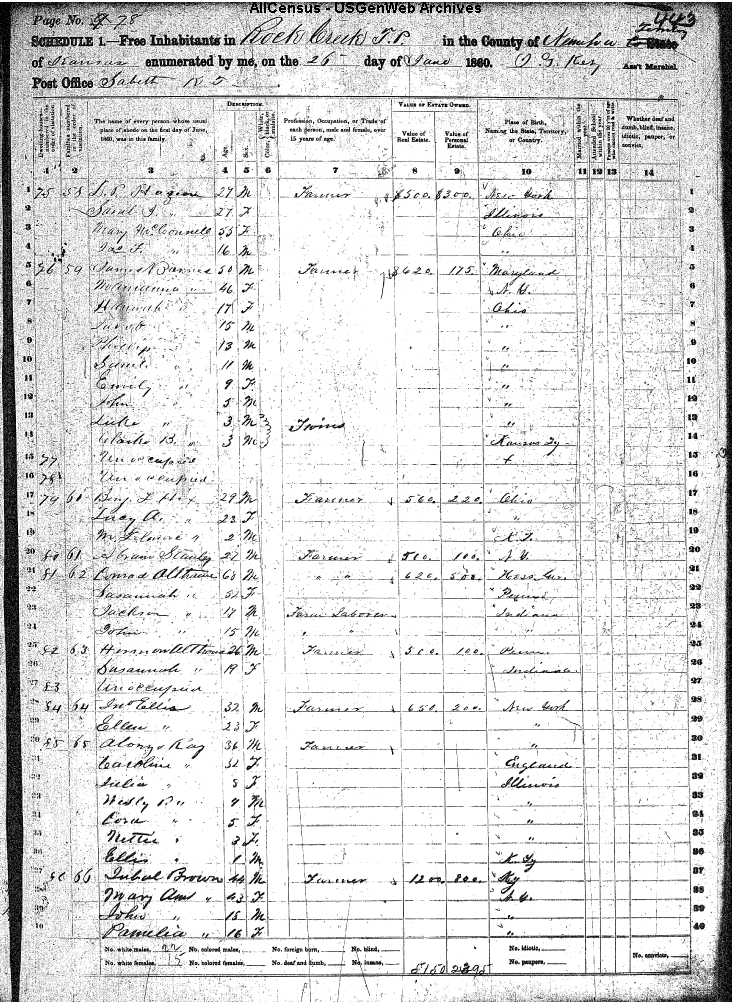 AllCensus - USGenWeb Archives
Page No. 78
443
SCHEDULE 1.—Free Inhabitants in Rock Creek T.P. in the County of Nemaha State
of Kansas enumerated by me, on the 26 day of June 1860. Ass't Marshal.
Post Office Sabeth K T
Dwelling-houses numbered in the order of visitation. Families numbered in the order of visitation. The name of every person whose usual place of abode on the first day of June, 1860, was in this family. DESCRIPTION. Age. Sex. Color, White, black, or mulatto. Profession, Occupation, or Trade of each person, male and female, over 15 years of age. VALUE OF ESTATE OWNED. Value of Real Estate. Value of Personal Estate. Place of Birth, Naming the State, Territory, or Country. Married within the year. Attended School within the year. Whether deaf and dumb, blind, insane, idiotic, pauper, or convict.
1 2 3 4 5 6 7 8 9 10 11 12 13 14
1 75 58 27 M Farmer $500. $300. New York 1
2 Sarah J. 27 F Illinois 2
3 Mary McConnell 55 F Ohio 3
4 Jas F. " 16 M " 4
5 76 59 James Barnes 50 M Farmer 620. 175. Maryland 5
6 " 46 F N.H. 6
7 Hannah " 17 F Ohio 7
8 Jacob " 15 M " 8
9 Phillip " 13 M " 9
10 Saml. " 11 M " 10
11 Emily " 9 F " 11
12 John " 5 M " 12
13 Luke " 3 M Twins " 13
14 Clark B. " 3 M Kansas Ty 14
15 77 Unoccupied 15
16 78 Unoccupied 16
17 79 60 Benj. F Hix 29 M Farmer 560. 220. Ohio 17
18 Lucy A. " 23 F " 18
19 " 2 M K.T. 19
20 80 61 Abram Stanley 22 M Farmer 500. 100. N.Y. 20
21 81 62 Conrad Althouse 60 M " " 620. 500. Hess Ger. 21
22 Susannah " 52 F Penn 22
23 Jackson " 17 M Farm Laborer Indiana 23
24 John " 15 M " " " 24
25 82 63 Hermon Althouse 26 M Farmer 500. 100. Penn. 25
26 Susannah " 19 F Indiana 26
27 83 Unoccupied 27
28 84 64 Jno Ellis 32 M Farmer 650. 200. New York 28
29 Ellen " 23 F " 29
30 85 65 Alonzo Ray 36 M Farmer " 30
31 Caroline " 32 F England 31
32 Julia " 8 F Illinois 32
33 Wesly " 7 M " 33
34 Cora " 5 F " 34
35 Nettie " 3 F. " 35
36 Ellis " 1 M K. Ty 36
37 86 66 Jubal Brown 44 M Farmer 1200. 800. Ky 37
38 Mary Ann " 43 F N.Y. 38
39 John " 18 M " 39
40 Pamelia " 16 F " 40
No. white males, 22 No. colored males, No. foreign born, No. blind, No. idiotic, No. convicts,
No. white females, 15 No. colored females, No. deaf and dumb, No. insane, 5150 2395 No. paupers,